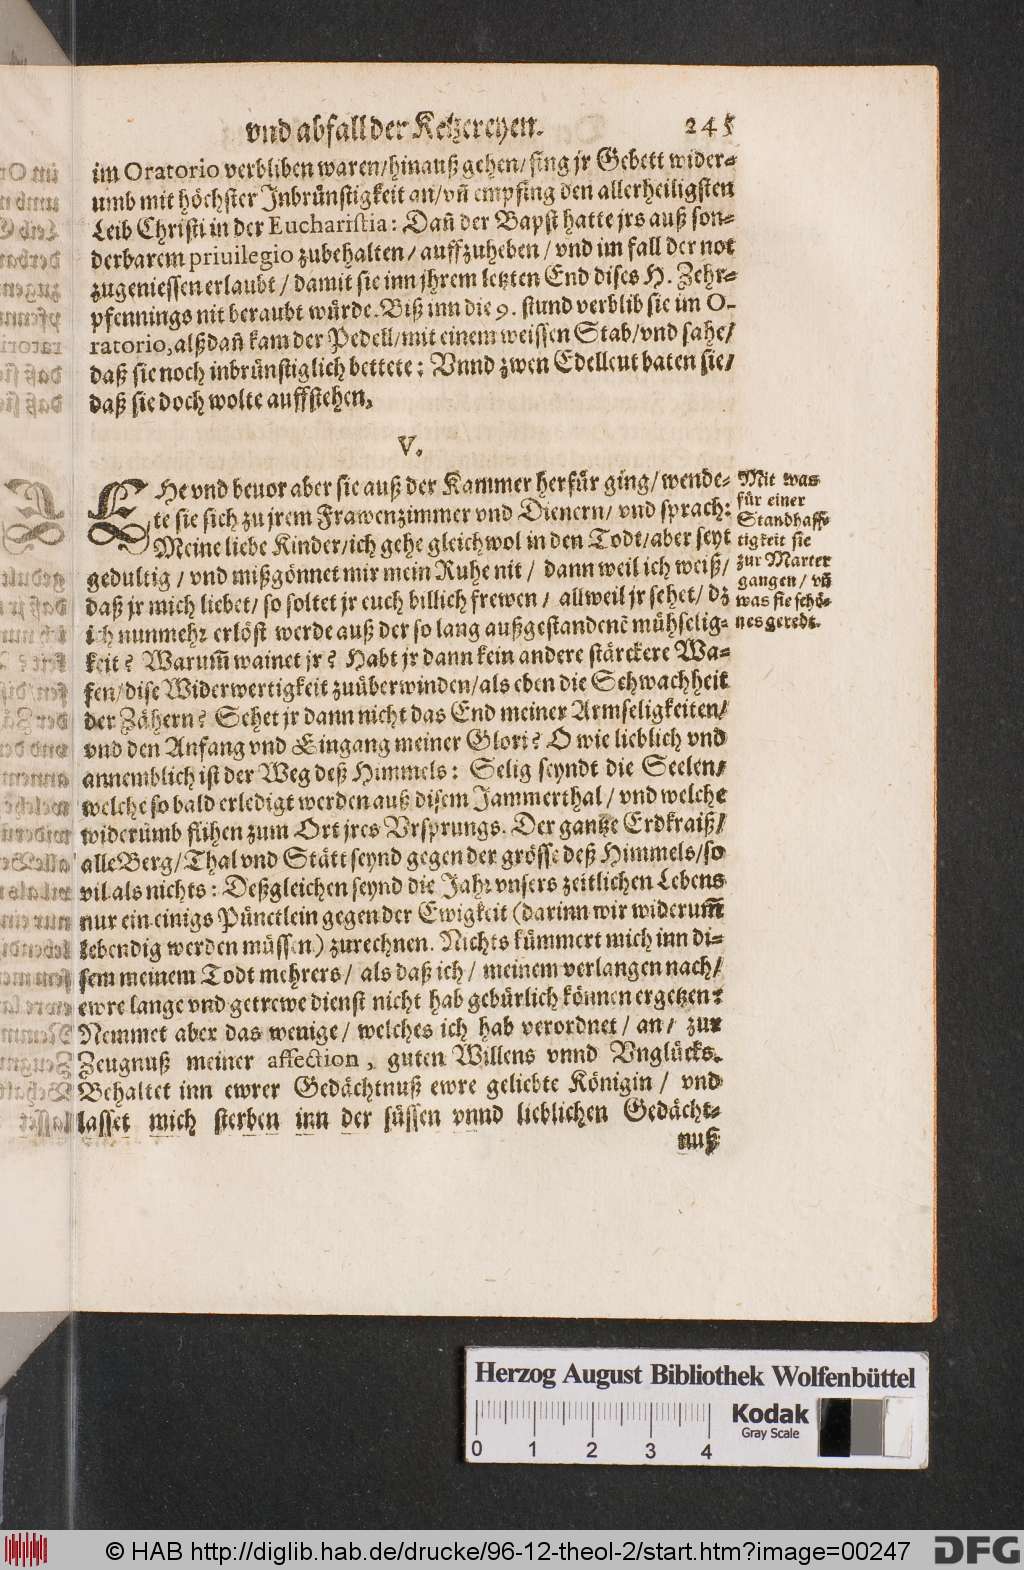 vnd abfall der Ketzereyen. 245
im Oratorio verbliben waren/hinauß gehen/fing jr Gebett wider-
umb mit höchster Inbrünstigkeit an/vñ empfing den allerheiligsten
Leib Christi in der Eucharistia: Dañ der Bapst hatte jrs auß son-
derbarem priuilegio zubehalten/ auffzuheben/ vnd im fall der not
zugeniessen erlaubt/ damit sie inn jhrem letzten End dises H. Zehr-
pfennings nit beraubt würde. Biß inn die 9. stund verblib sie im O-
ratorio, alßdañ kam der Pedell/mit einem weissen Stab/vnd sahe/
daß sie noch inbrünstiglich bettete: Vnnd zwen Edelleut baten sie/
daß sie doch wolte auffstehen.
V.
EHe vnd beuor aber sie auß der Kammer herfür ging/ wende-
te sie sich zu jrem Frawenzimmer vnd Dienern/ vnd sprach:
Meine liebe Kinder/ich gehe gleichwol in den Todt/aber seyt
gedultig/ vnd mißgönnet mir mein Ruhe nit/ dann weil ich weiß/
daß jr mich liebet/ so soltet jr euch billich frewen/ allweil jr sehet/ dz
ich nunmehr erlöst werde auß der so lang außgestandenẽ mühselig-
keit? Warum̃ wainet jr? Habt jr dann kein andere stärckere Wa-
fen/dise Widerwertigkeit zuüberwinden/als eben die Schwachheit
der Zähern? Sehet jr dann nicht das End meiner Armseligkeiten/
vnd den Anfang vnd Eingang meiner Glori? O wie lieblich vnd
annemblich ist der Weg deß Himmels: Selig seyndt die Seelen/
welche so bald erledigt werden auß disem Jammerthal/ vnd welche
widerumb flihen zum Ort jres Vrsprungs. Der gantze Erdkraiß/
alle Berg/Thal vnd Stätt seynd gegen der grösse deß Himmels/so
vil als nichts: Deßgleichen seynd die Jahr vnsers zeitlichen Lebens
nur ein einigs Pünctlein gegen der Ewigkeit (darinn wir widerum̃
lebendig werden müssen) zurechnen. Nichts kümmert mich inn di-
sem meinem Todt mehrers/ als daß ich/ meinem verlangen nach/
ewre lange vnd getrewe dienst nicht hab gebürlich können ergetzen:
Nemmet aber das wenige/ welches ich hab verordnet/ an/ zur
Zeugnuß meiner affection, guten Willens vnnd Vnglücks.
Behaltet inn ewrer Gedächtnuß ewre geliebte Königin/ vnd
lasset mich sterben inn der süssen vnnd lieblichen Gedächt-
nuß
Mit was
für einer
Standhaff-
tigkeit sie
zur Marter
gangen/ vñ
was sie schö-
nes geredt.
Herzog August Bibliothek Wolfenbüttel
0 1 2 3 4
Kodak
Gray Scale
© HAB http://diglib.hab.de/drucke/96-12-theol-2/start.htm?image=00247
DFG